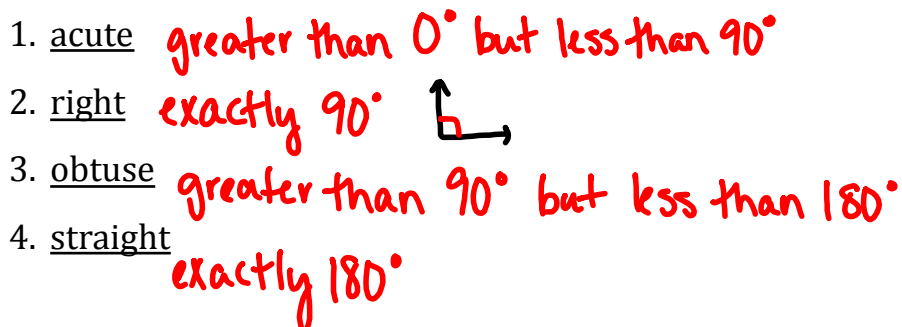 1. acute greater than 0° but less than 90°
2. right exactly 90°
3. obtuse greater than 90° but less than 180°
4. straight exactly 180°